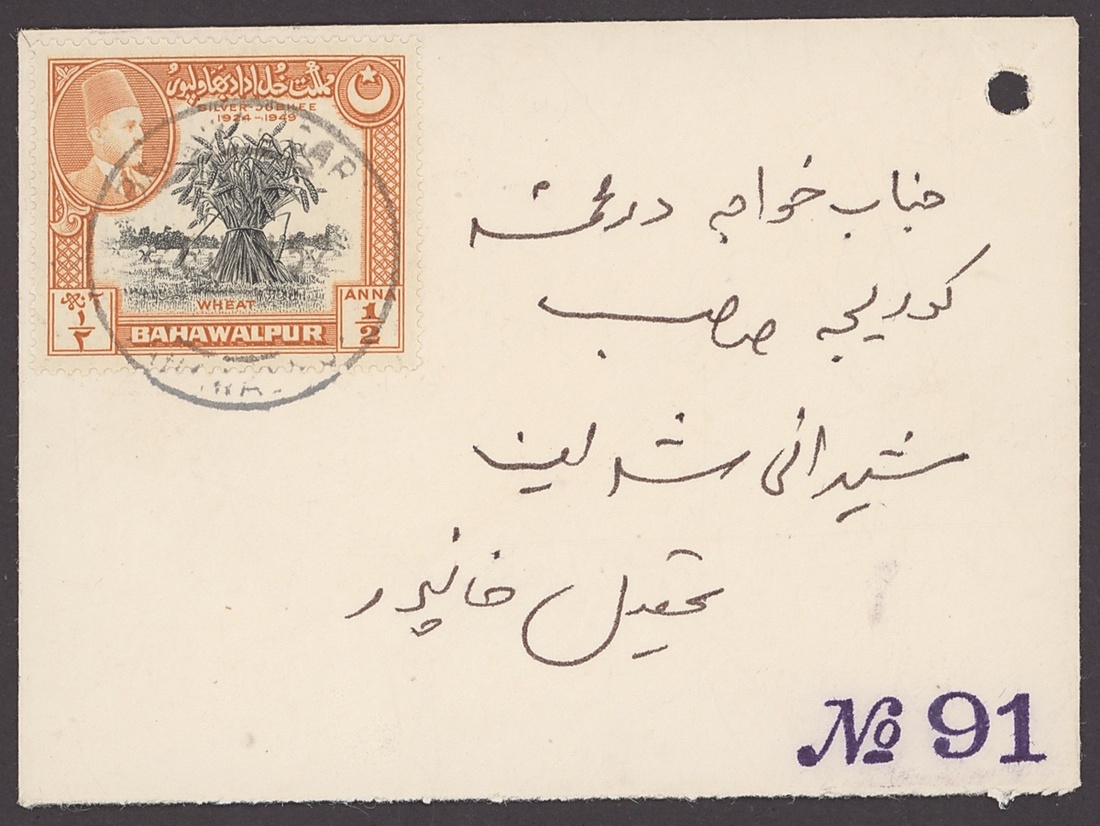 مملکت خداداد بهاولپور
SILVER JUBILEE
1924-1949
WHEAT
ANNA
1/2
۱/۲
BAHAWALPUR
جناب خواجہ در محمد
کوریجہ صاحب
شیدانی شریف
تحصیل خانپور
№ 91